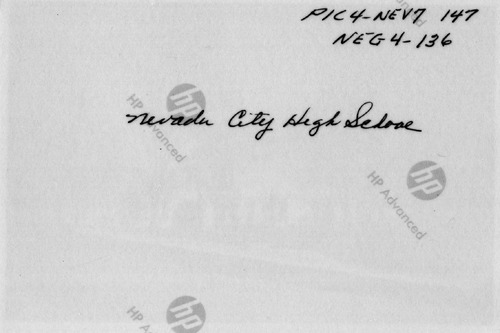 PIC4-NEV7 147
NEG4-136
Nevada City High School
hp
HP Advanced
hp
HP Advanced
hp
HP Adv